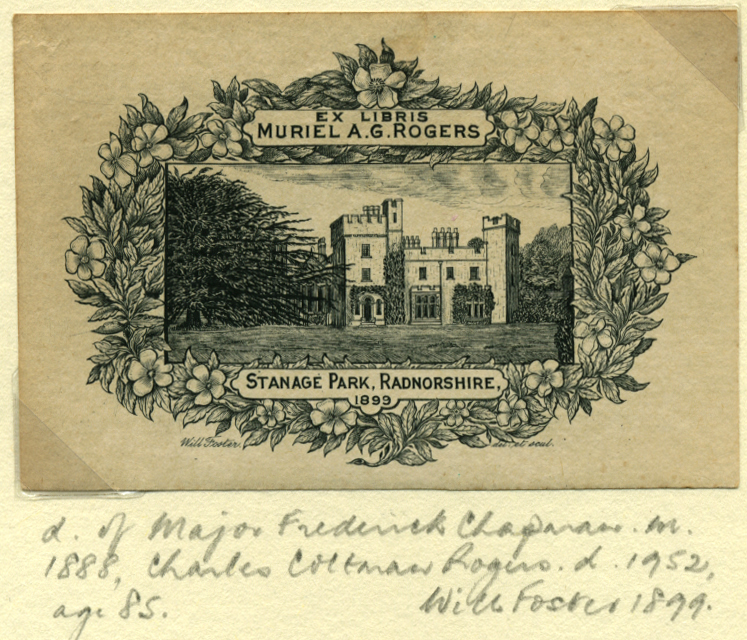 EX LIBRIS
MURIEL A.G. ROGERS
STANAGE PARK, RADNORSHIRE,
1899
Will Foster. del et scul.
d. of Major Frederick Chapman. m.
1888, Charles Coltman Rogers. d. 1952,
age 85. Will Foster 1899.